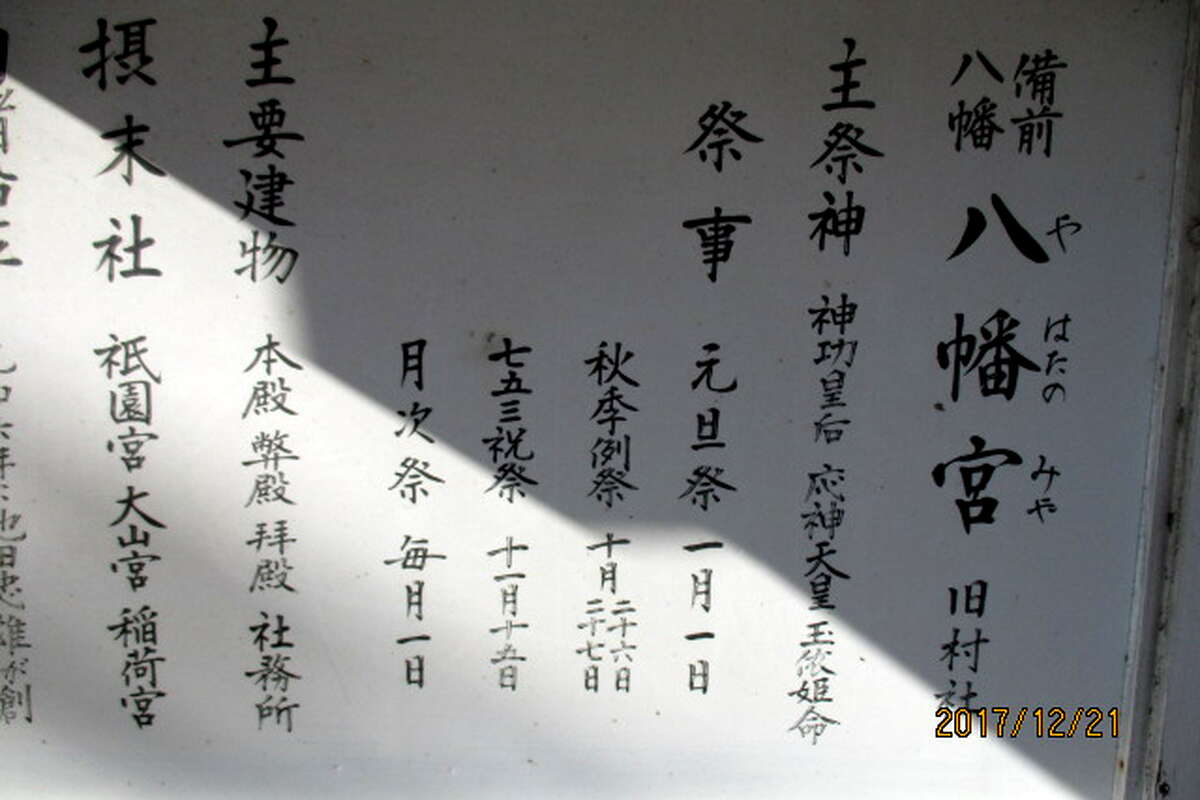 備前
八幡
八幡宮 旧村社
や はたの みや
主祭神 神功皇后 応神天皇 玉依姫命
祭事 元旦祭 一月一日
秋季例祭 十月二十六日
二十七日
七五三祝祭 十一月十五日
月次祭 毎月一日
主要建物 本殿 弊殿 拝殿 社務所
摂末社 祇園宮 大山宮 稲荷宮
忠雄が創
2017/12/21